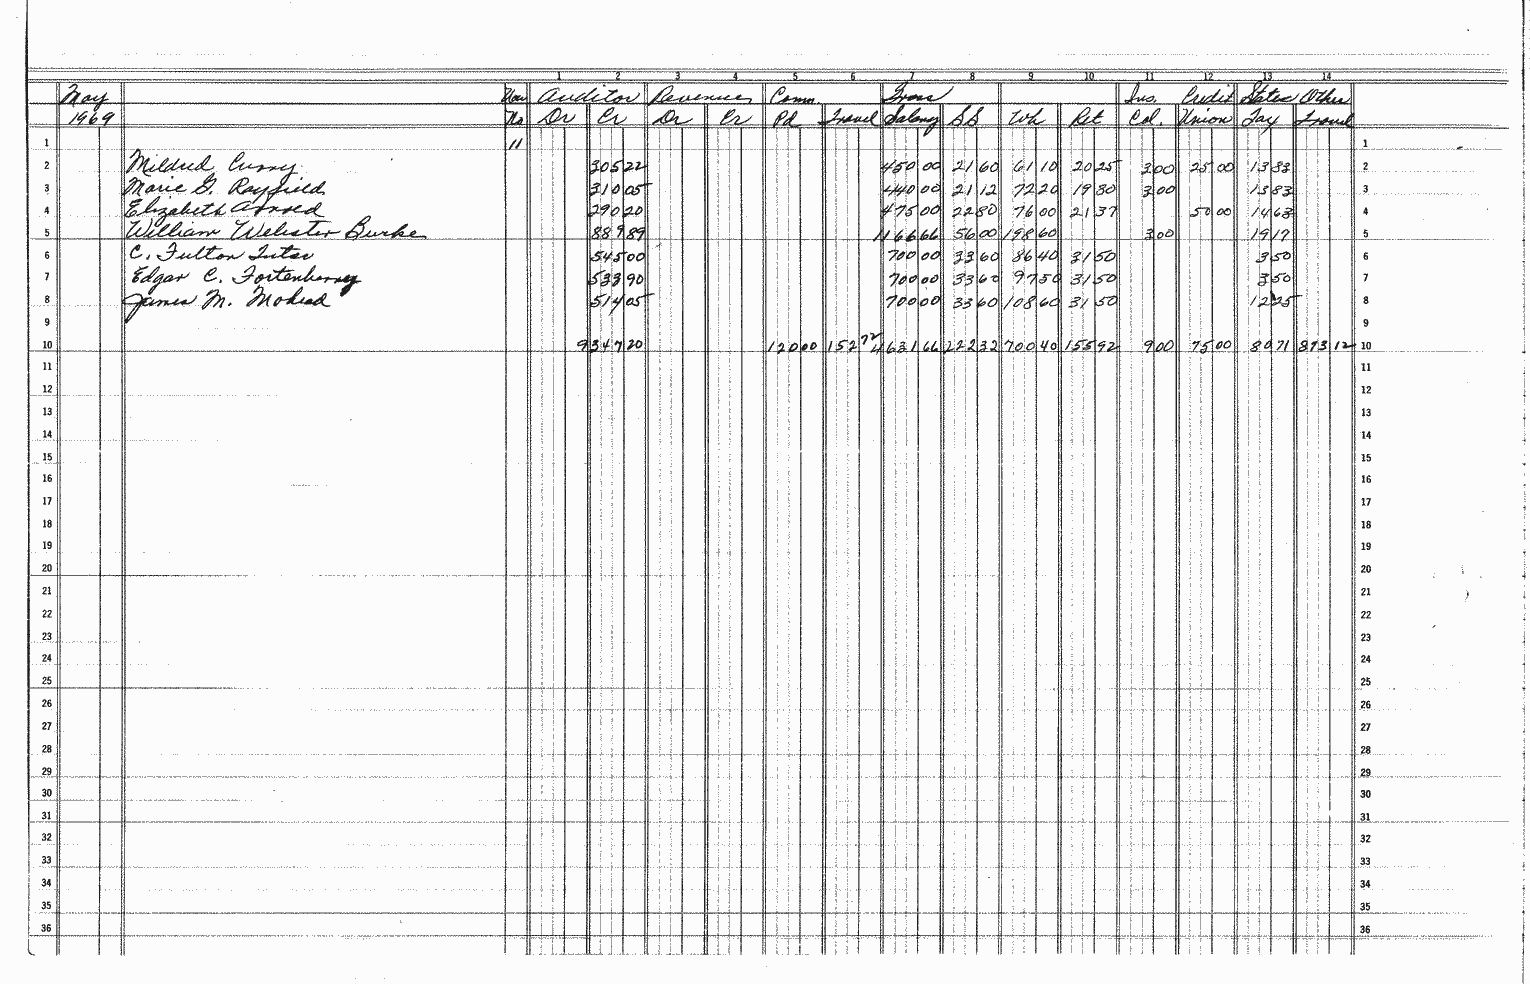 1 2 3 4 5 6 7 8 9 10 11 12 13 14
May Vou Auditor Revenue Comm. Gross Ins. Credit State Other
1969 No Dr Cr Dr Cr Pd Travel Salary SS Wh Ret Col. Union Tax Travel
1 11 1
2 Mildred Curry 305 22 450 00 21 60 61 10 20 25 3 00 25 00 13 83 2
3 Marie G. Rayfield 310 05 440 00 21 12 72 20 19 80 3 00 13 83 3
4 Elizabeth Arnold 290 20 475 00 22 80 76 00 21 37 50 00 14 63 4
5 William Webster Burke 889 89 1166 66 56 00 198 60 3 00 19 17 5
6 C. Fulton Tutor 545 00 700 00 33 60 86 40 31 50 3 50 6
7 Edgar C. Fortenberry 533 90 700 00 33 60 97 50 31 50 3 50 7
8 James M. Mohead 514 05 700 00 33 60 108 60 31 50 12 25 8
9 9
10 9347 20 120 00 152 72 4631 66 222 32 700 40 155 92 9 00 75 00 80 71 873 12 10
11 11
12 12
13 13
14 14
15 15
16 16
17 17
18 18
19 19
20 20
21 21
22 22
23 23
24 24
25 25
26 26
27 27
28 28
29 29
30 30
31 31
32 32
33 33
34 34
35 35
36 36